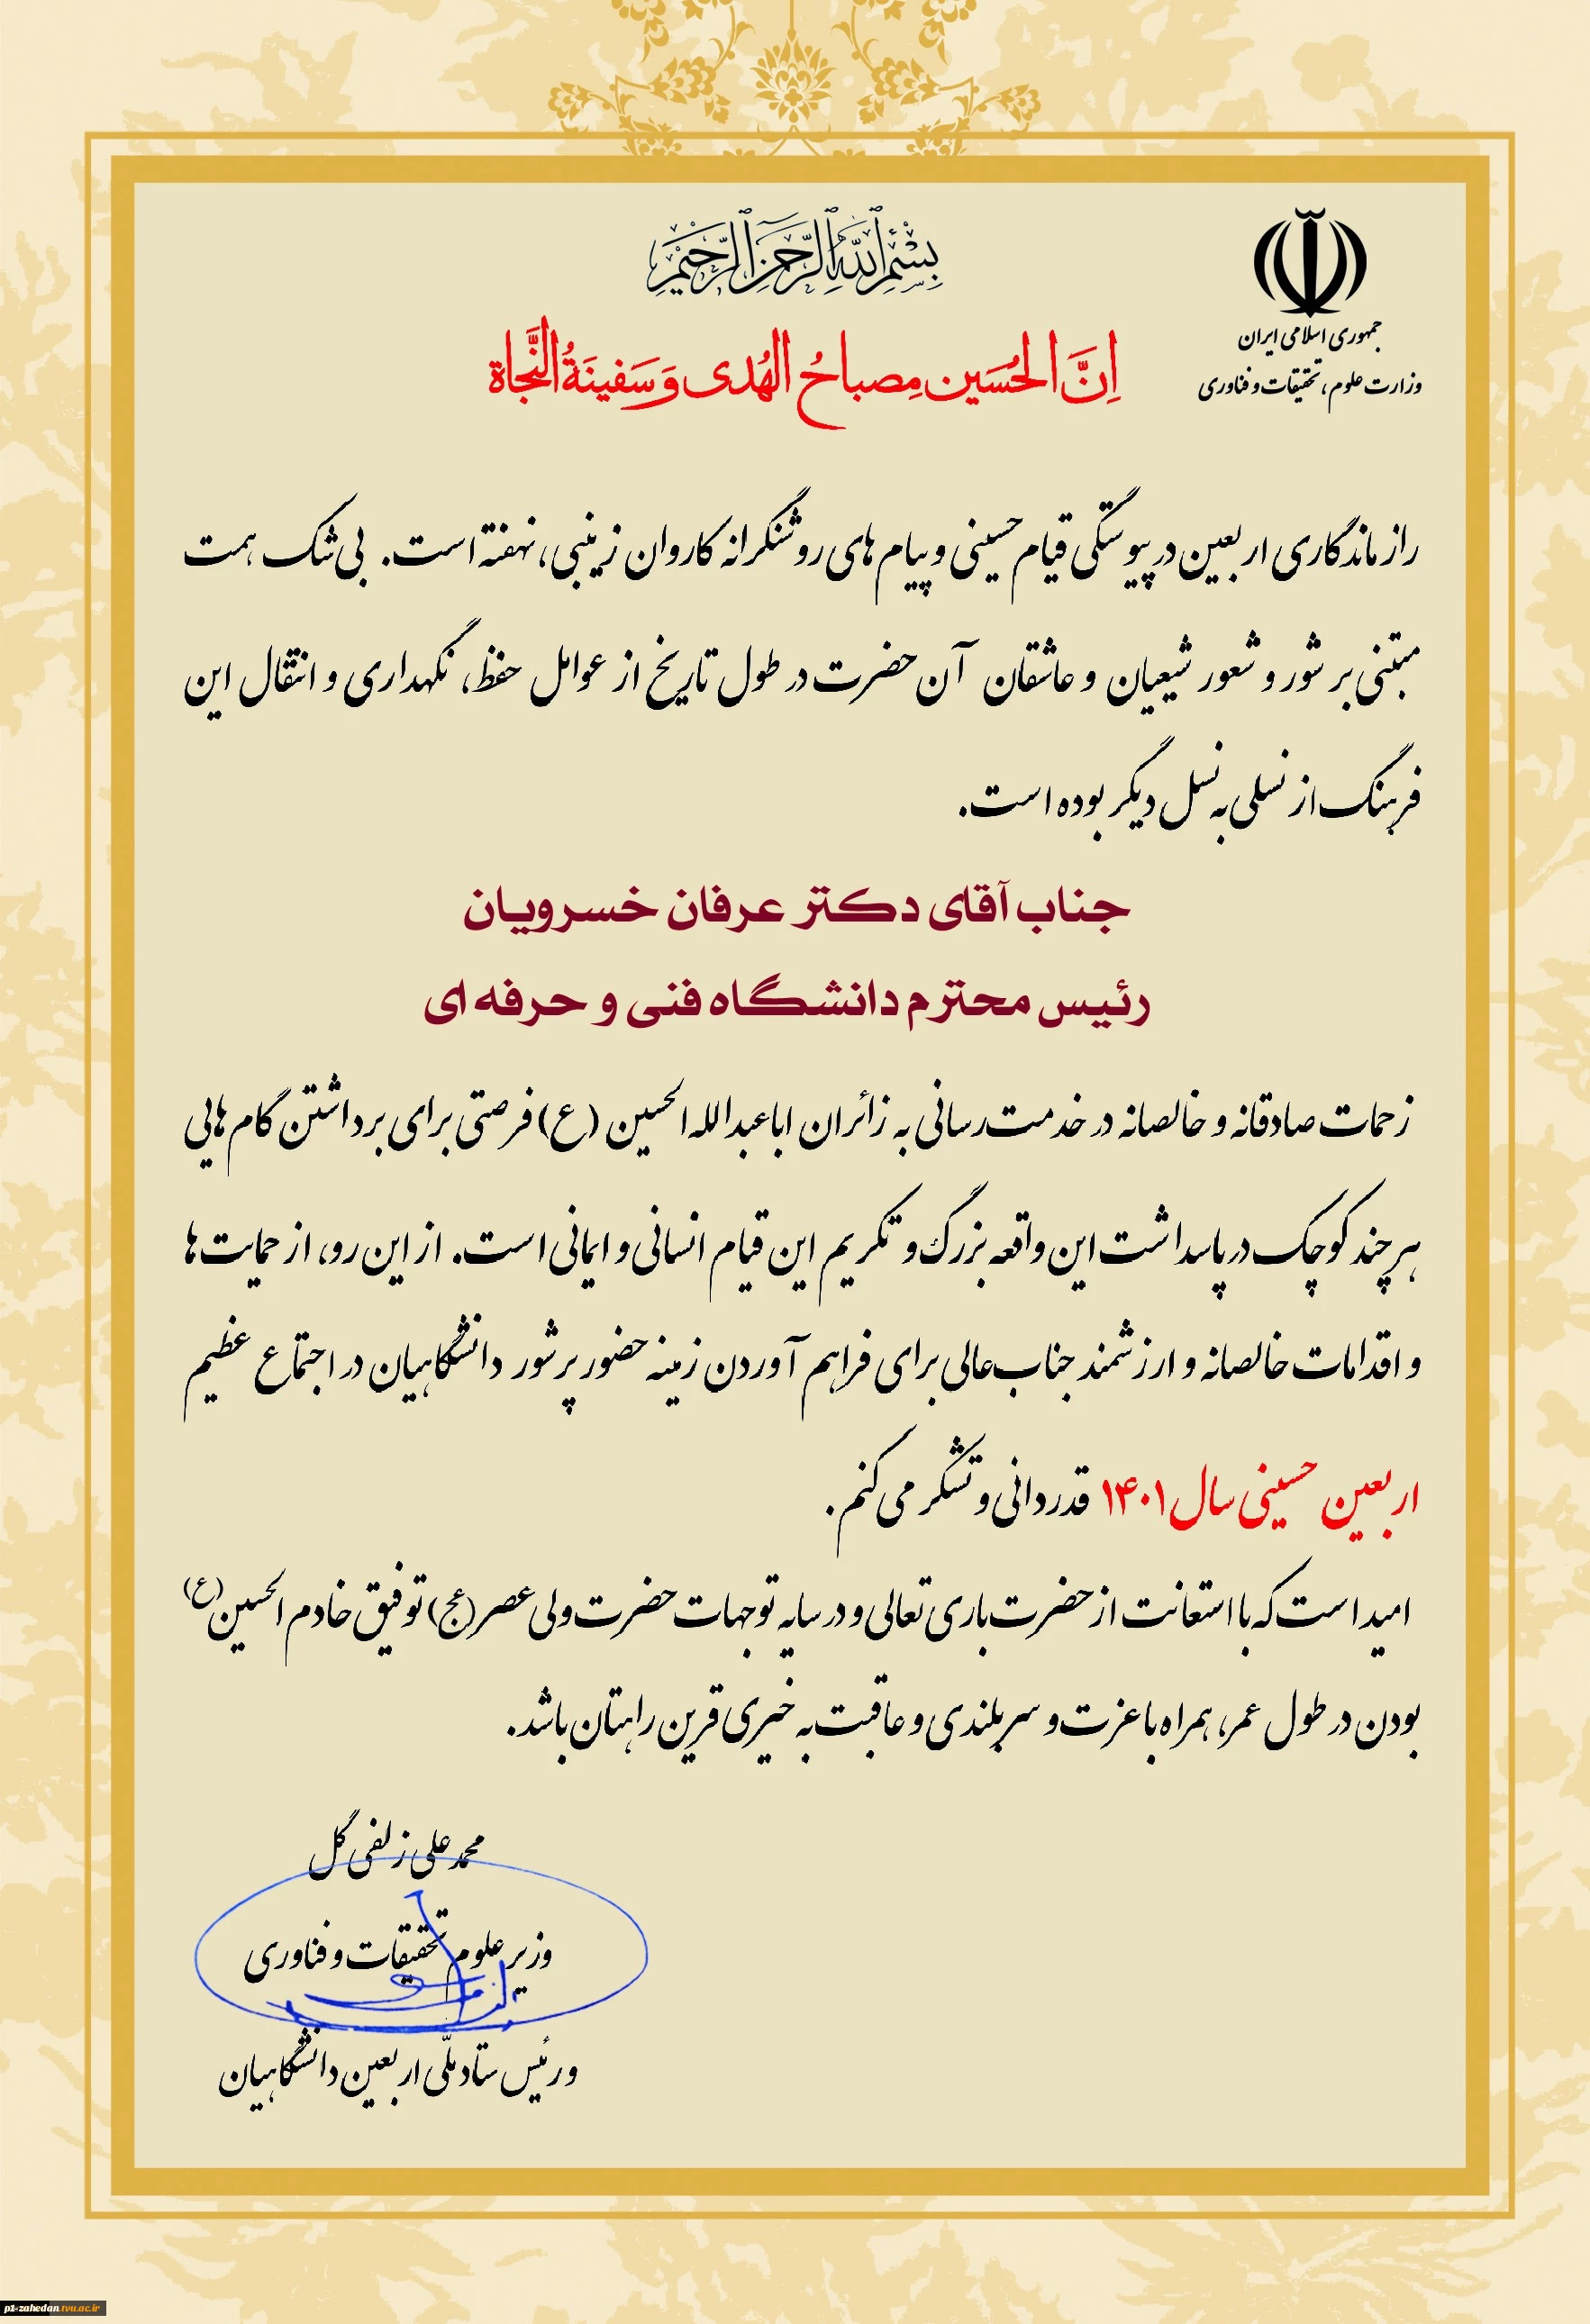 بِسْمِ اللهِ الرَّحْمنِ الرَّحیمِ
جمهوری اسلامی ایران
وزارت علوم، تحقیقات و فناوری
اِنَّ الحُسَین مِصباحُ الهُدی وَ سَفینَةُ النَّجاة
راز ماندگاری اربعین در پیوستگی قیام حسینی و پیام های روشنگرانه کاروان زینبی، نهفته است. بی شک همت
مبتنی بر شور و شعور شیعیان و عاشقان آن حضرت در طول تاریخ از عوامل حفظ، نگهداری و انتقال این
فرهنگ از نسلی به نسل دیگر بوده است.
جناب آقای دکتر عرفان خسرویان
رئیس محترم دانشگاه فنی و حرفه ای
زحمات صادقانه و خالصانه در خدمت رسانی به زائران اباعبدالله الحسین (ع) فرصتی برای برداشتن گام هایی
هر چند کوچک در پاسداشت این واقعه بزرگ و تکریم این قیام انسانی و ایمانی است. از این رو، از حمایت ها
و اقدامات خالصانه و ارزشمند جناب عالی برای فراهم آوردن زمینه حضور پرشور دانشگاهیان در اجتماع عظیم
اربعین حسینی سال ۱۴۰۱ قدردانی و تشکر می کنم.
امید است که با استعانت از حضرت باری تعالی و در سایه توجهات حضرت ولی عصر (عج) توفیق خادم الحسین (ع)
بودن در طول عمر، همراه با عزت و سربلندی و عاقبت به خیری قرین راهتان باشد.
محمد علی زلفی گل
وزیر علوم تحقیقات و فناوری
و رئیس ستاد ملّی اربعین دانشگاهیان
p1-zahedan.tvu.ac.ir